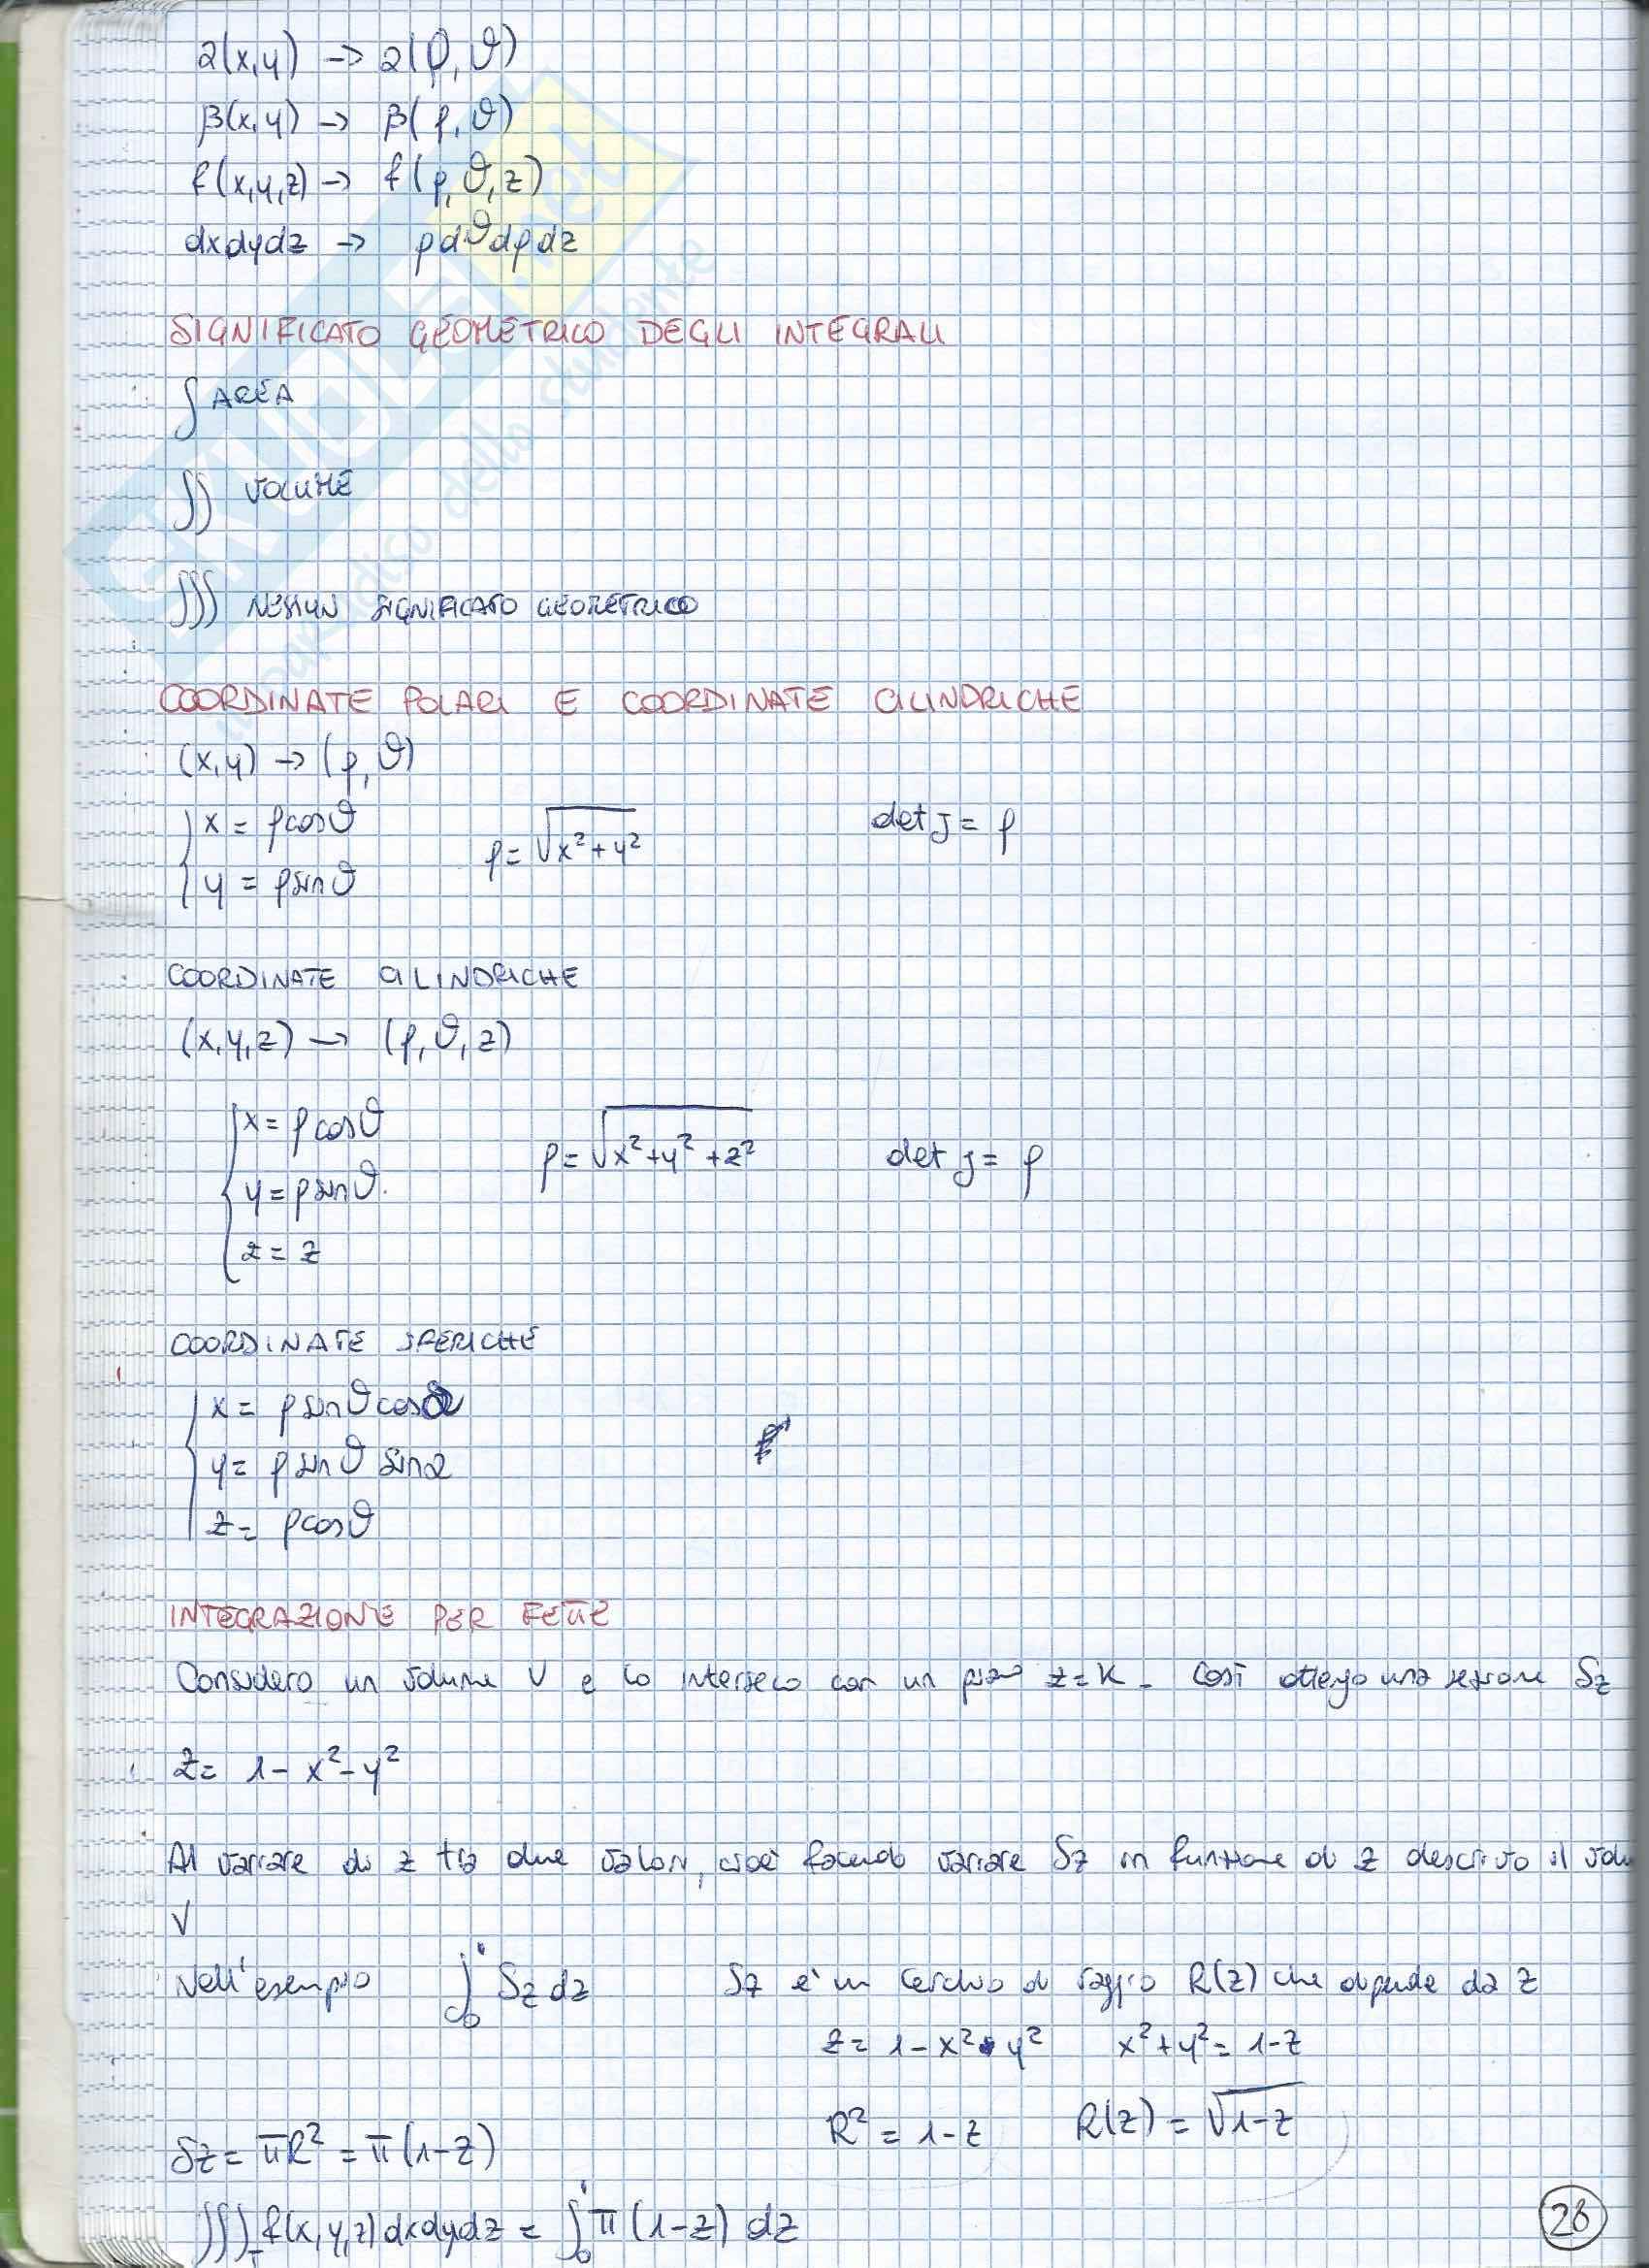 α(x,y) → α(ρ,ϑ)
β(x,y) → β(ρ,ϑ)
f(x,y,z) → f(ρ,ϑ,z)
dxdydz → ρdϑdρdz
SIGNIFICATO GEOMETRICO DEGLI INTEGRALI
∫ AREA
∬ VOLUME
∭ NESSUN SIGNIFICATO GEOMETRICO
COORDINATE POLARI E COORDINATE CILINDRICHE
(x,y) → (ρ,ϑ)
x = ρcosϑ
y = ρsinϑ
ρ = √x²+y²
det J = ρ
COORDINATE CILINDRICHE
(x,y,z) → (ρ,ϑ,z)
x = ρcosϑ
y = ρsinϑ
z = z
ρ = √x²+y²+z²
det J = ρ
COORDINATE SFERICHE
x = ρsinϑcosα
y = ρsinϑ sinα
z = ρcosϑ
INTEGRAZIONE PER FETTE
Considero un volume V e lo interseco con un piano z=K. Così ottengo una sezione Sz
z = 1-x²-y²
Al variare di z tra due valori, cioè facendo variare Sz in funzione di z descrivo il volu
V
Nell'esempio ∫₀¹ Sz dz Sz è un cerchio di raggio R(z) che dipende da z
z = 1-x²-y² x²+y² = 1-z
R² = 1-z R(z) = √1-z
Sz = πR² = π(1-z)
∭ f(x,y,z)dxdydz = ∫₀¹ π(1-z) dz
28
SKUOLA.net
il paradiso dello studente